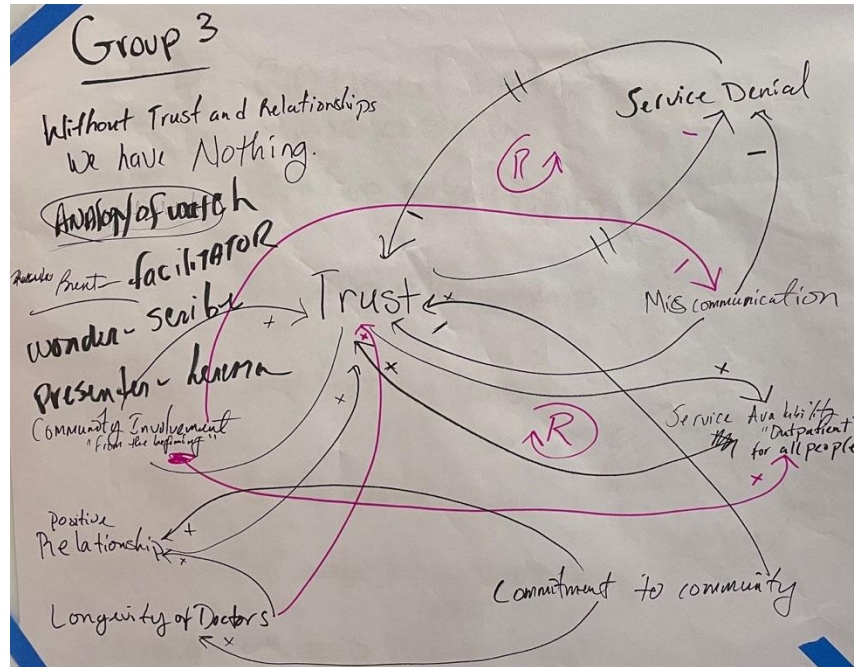 Group 3
Without Trust and Relationships
We have Nothing.
Analogy of watch
Brent - facilitator
wonder - scribe
presenter -
Community Involvement
"From the beginning"
Positive
Relationship
Longevity of Doctors
Trust
R
R
Service Denial
Miscommunication
Service Availability
"Outpatient"
for all people
Commitment to community
+
+
+
+
+
+
+
+
+
+
+
-
-
-
-
-